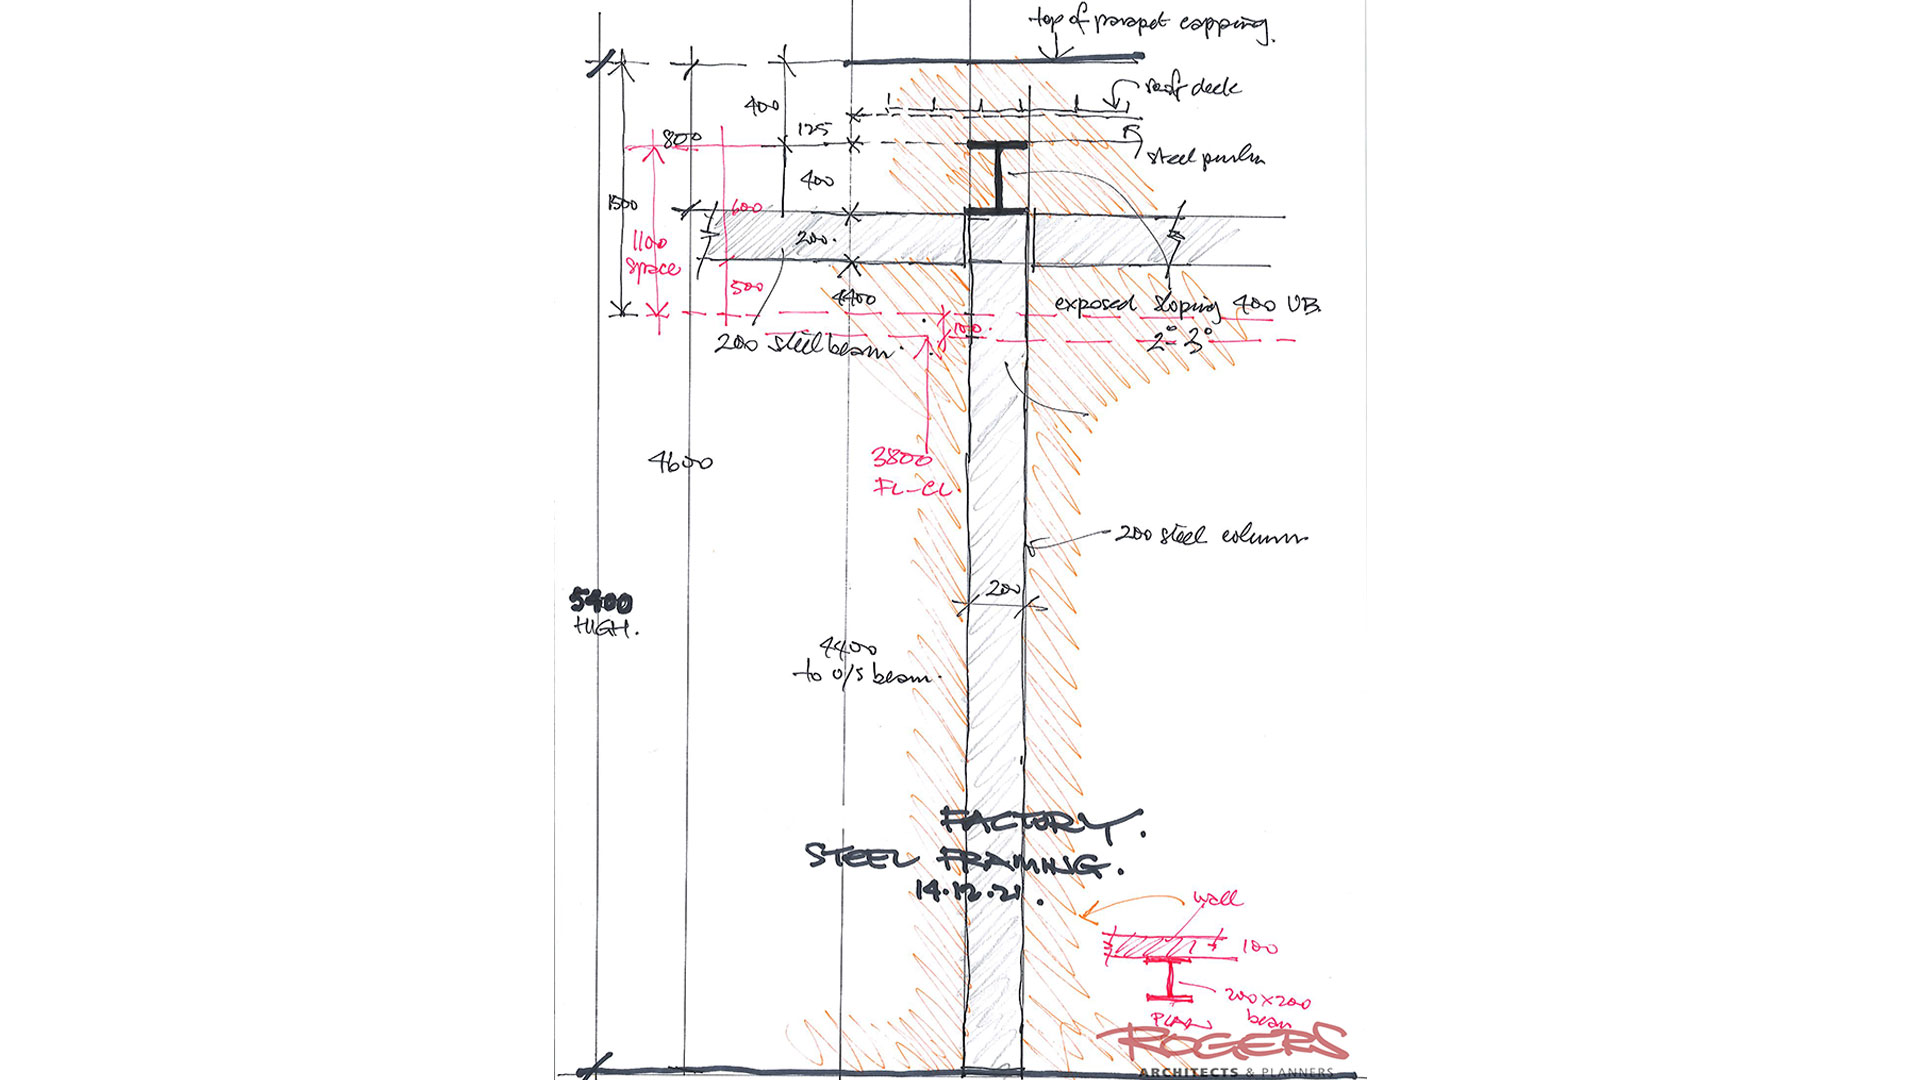 top of parapet capping.
roof deck
400
125
800
steel purlin
400
1500
600
1100
space
200.
500
4400
exposed sloping 400 UB.
2° 3°
100.
200 steel beam.
3800
FL-CL
4600
200 steel column
200
5400
HIGH.
4400
to o/s beam.
FACTORY.
STEEL FRAMING.
14.12.21.
wall
100
200x200
beam
PLAN
ROGERS
ARCHITECTS & PLANNERS